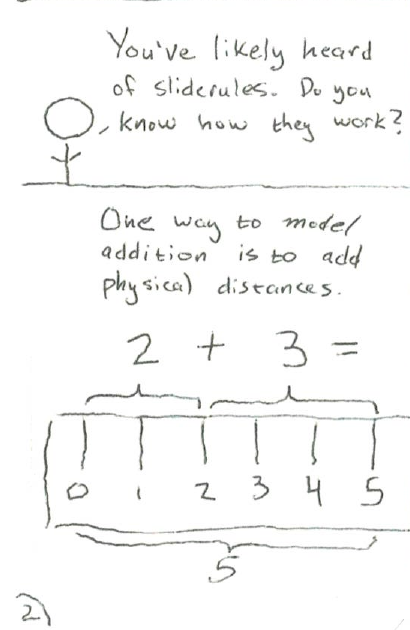 You've likely heard
of sliderules. Do you
know how they work?
One way to model
addition is to add
physical distances.
2 + 3 =
0 1 2 3 4 5
5
2)